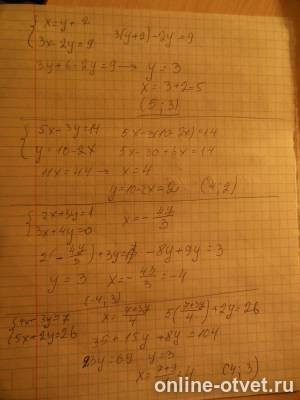 { x = y + 2
{ 3x - 2y = 9    3(y+2) - 2y = 9
3y + 6 - 2y = 9 → y = 3
x = 3 + 2 = 5
(5; 3)
{ 5x - 3y = 14    5x - 3(10 - 2x) = 14
{ y = 10 - 2x    5x - 30 + 6x = 14
11x = 44 → x = 4
y = 10 - 2x = 2    (4; 2)
{ 2x + 3y = 1    x = -4y/3
{ 3x + 4y = 0
2(-4y/3) + 3y = 1    -8y + 9y = 3
y = 3    x = -4·3/3 = -4
(-4; 3)
{ 4x - 3y = 7    x = 7+3y/4    5(7+3y/4) + 2y = 26
{ 5x + 2y = 26
35 + 15y + 8y = 104
23y = 69    y = 3
x = 7+9/4 = 4    (4; 3)
online-otvet.ru